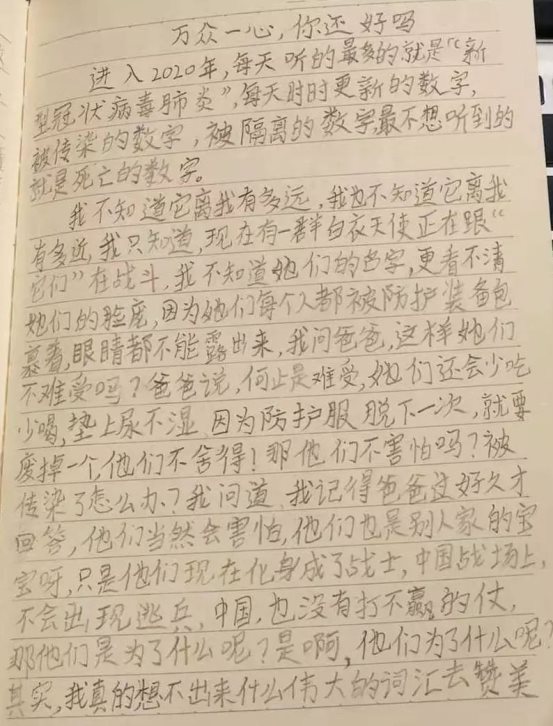 万众一心，你还好吗
进入2020年，每天听的最多的就是“新
型冠状病毒肺炎”，每天时时更新的数字，
被传染的数字，被隔离的数字，最不想听到的
就是死亡的数字。
我不知道它离我有多远，我也不知道它离我
有多近，我只知道，现在有一群白衣天使正在跟“
它们”在战斗，我不知道她们的名字，更看不清
她们的脸庞，因为她们每个人都被防护装备包
裹着，眼睛都不能露出来，我问爸爸，这样她们
不难受吗？爸爸说，何止是难受，她们还会少吃
少喝，垫上尿不湿，因为防护服脱下一次，就要
废掉一个，他们不舍得！那他们不害怕吗？被
传染了怎么办？我问道，我记得爸爸过好久才
回答，他们当然会害怕，他们也是别人家的宝
宝呀，只是他们现在化身成了战士，中国战场上，
不会出现逃兵，中国，也没有打不赢的仗，
那他们是为了什么呢？是啊，他们为了什么呢？
其实，我真的想不出来什么伟大的词汇去赞美